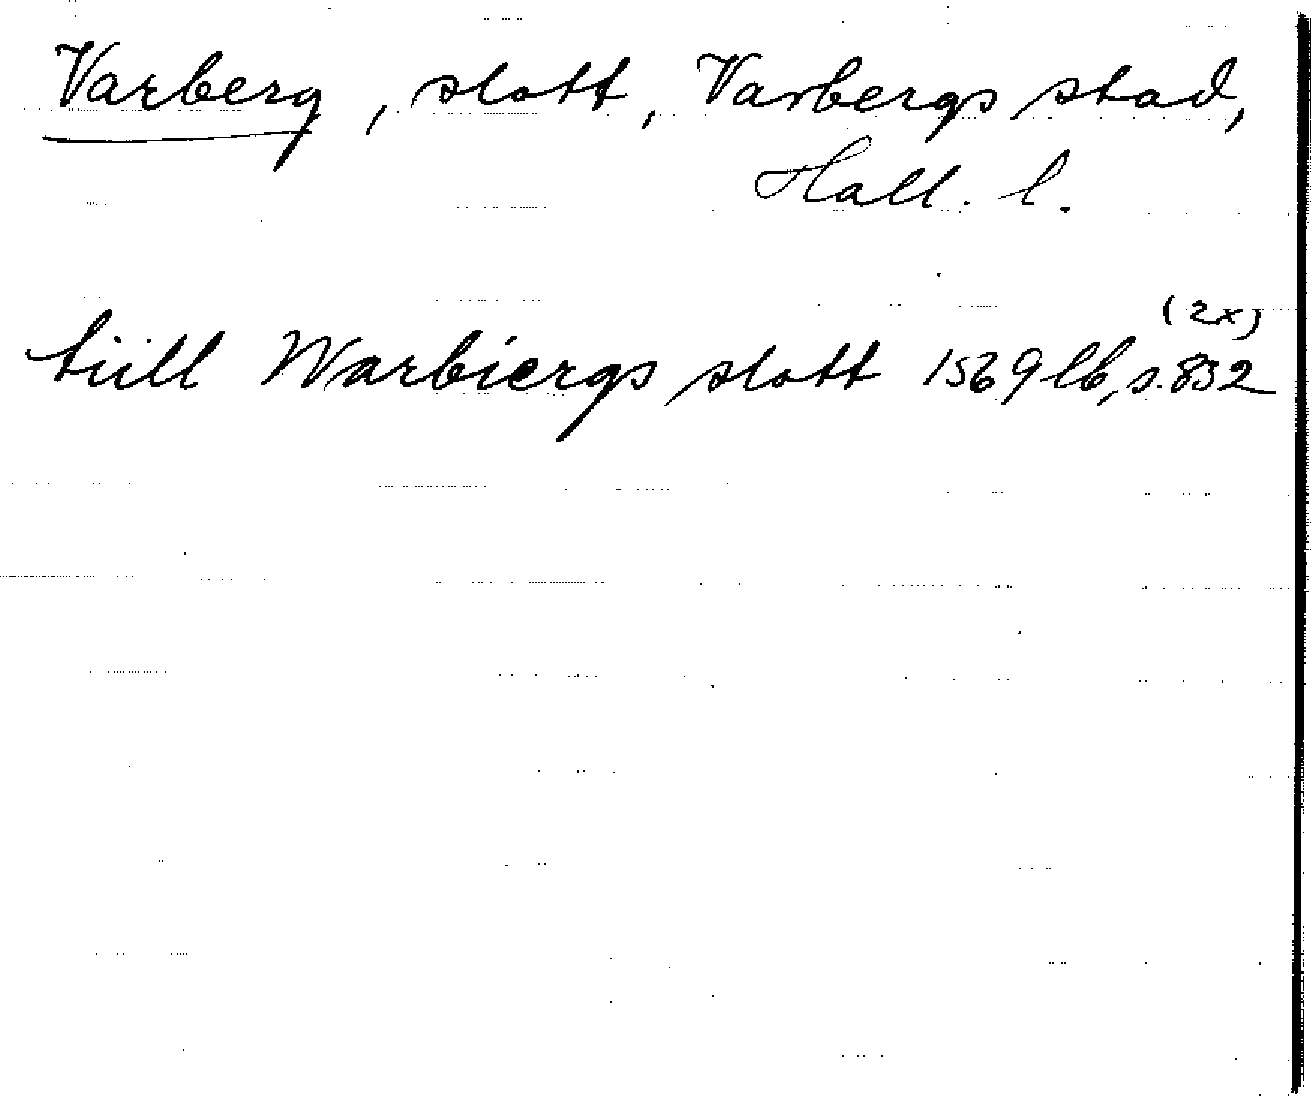 Varberg, slott, Varbergs stad,
Hall. l.
(2x)
tiill Warbiergs slott 1569 lb, s. 852